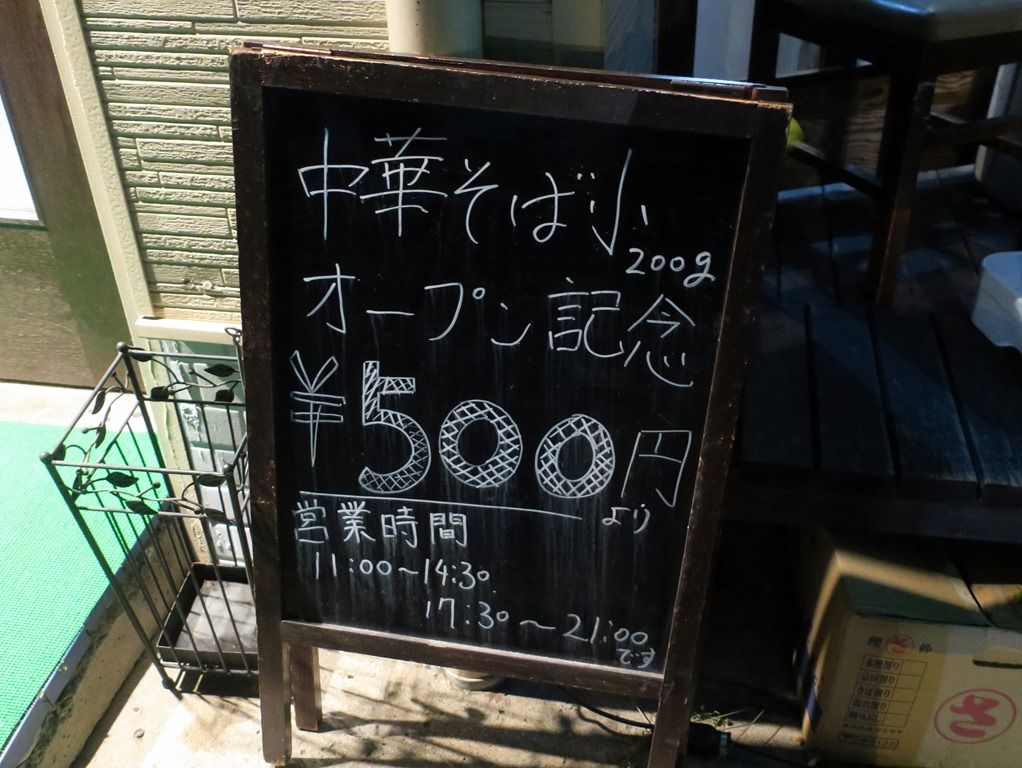 中華そば小
200g
オープン記念
¥500円
より
営業時間
11:00〜14:30
17:30〜21:00
です
さば削り